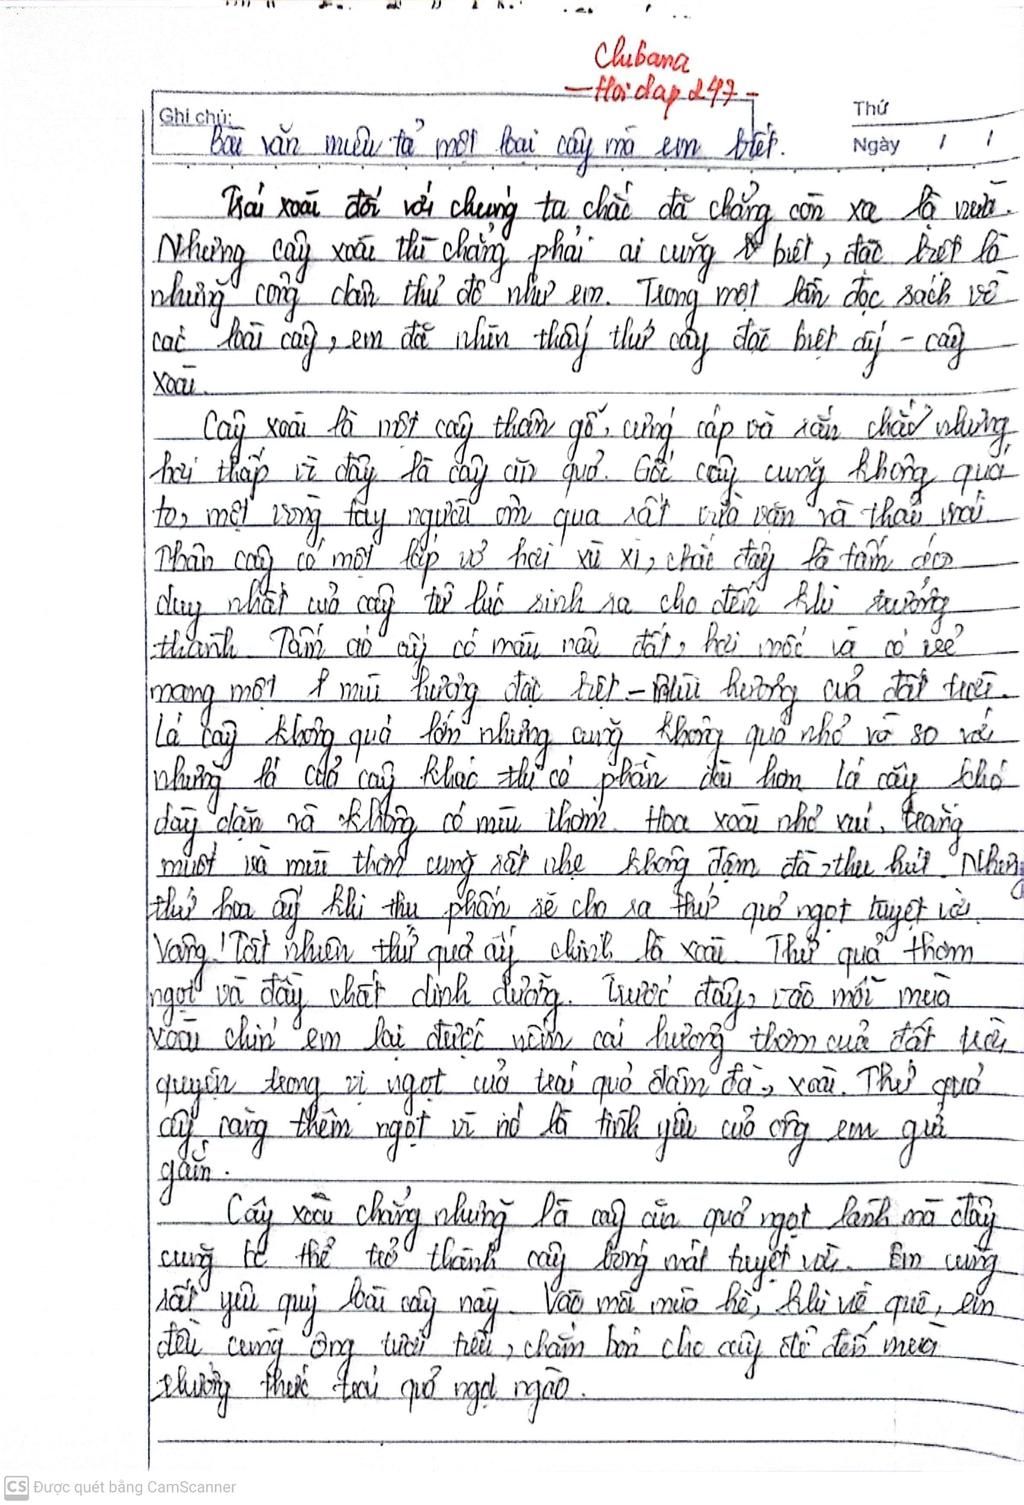 Chubana
- Hoi dap 247 -
Ghi chú:
Thứ
Ngày / /
Bài văn miêu tả một loại cây mà em biết.
Trái xoài đối với chúng ta chắc đã chẳng còn xa lạ nữa.
Nhưng cây xoài thì chẳng phải ai cũng biết, đặc biệt là
những công dân thủ đô như em. Trong một lần đọc sách về
các loài cây, em đã nhìn thấy thứ cây đặc biệt ấy - cây
xoài.
Cây xoài là một cây thân gỗ, cứng cáp và rắn chắc nhưng
hơi thấp vì đây là cây ăn quả. Gốc cây cũng không quá
to, một vòng tay người ôm qua rất vừa vặn và thoải mái.
Thân cây có một lớp vỏ hơi xù xì, chắc đây là tấm áo
duy nhất của cây từ lúc sinh ra cho đến khi trưởng
thành. Tấm áo ấy có màu nâu đất, hơi mốc và có vẻ
mang một mùi hương đặc biệt - Mùi hương của đất trời.
Lá cây không quá lớn nhưng cũng không quá nhỏ và so với
những lá của cây khác thì có phần dài hơn. Lá cây khá
dày dặn và không có mùi thơm. Hoa xoài nhỏ xíu, trắng
muốt và mùi thơm cũng rất nhẹ không đậm đà, thu hút. Nhưng
thứ hoa ấy khi thụ phấn sẽ cho ra thứ quả ngọt tuyệt vời.
Vâng! Tất nhiên thứ quả ấy chính là xoài. Thứ quả thơm
ngọt và đầy chất dinh dưỡng. Trước đây, vào mỗi mùa
xoài chín em lại được nếm cái hương thơm của đất trời
quyện trong vị ngọt của trái quả đậm đà, xoài. Thứ quả
ấy càng thêm ngọt vì nó là tình yêu của ông em gửi
gắm.
Cây xoài chẳng những là cây ăn quả ngọt lành mà đây
cũng có thể trở thành cây bóng mát tuyệt vời. Em cũng
rất yêu quý loài cây này. Vào mỗi mùa hè, khi về quê, em
đều cùng ông tưới tiêu, chăm bón cho cây để đến mùa
thưởng thức trái quả ngọt ngào.
CS Được quét bằng CamScanner